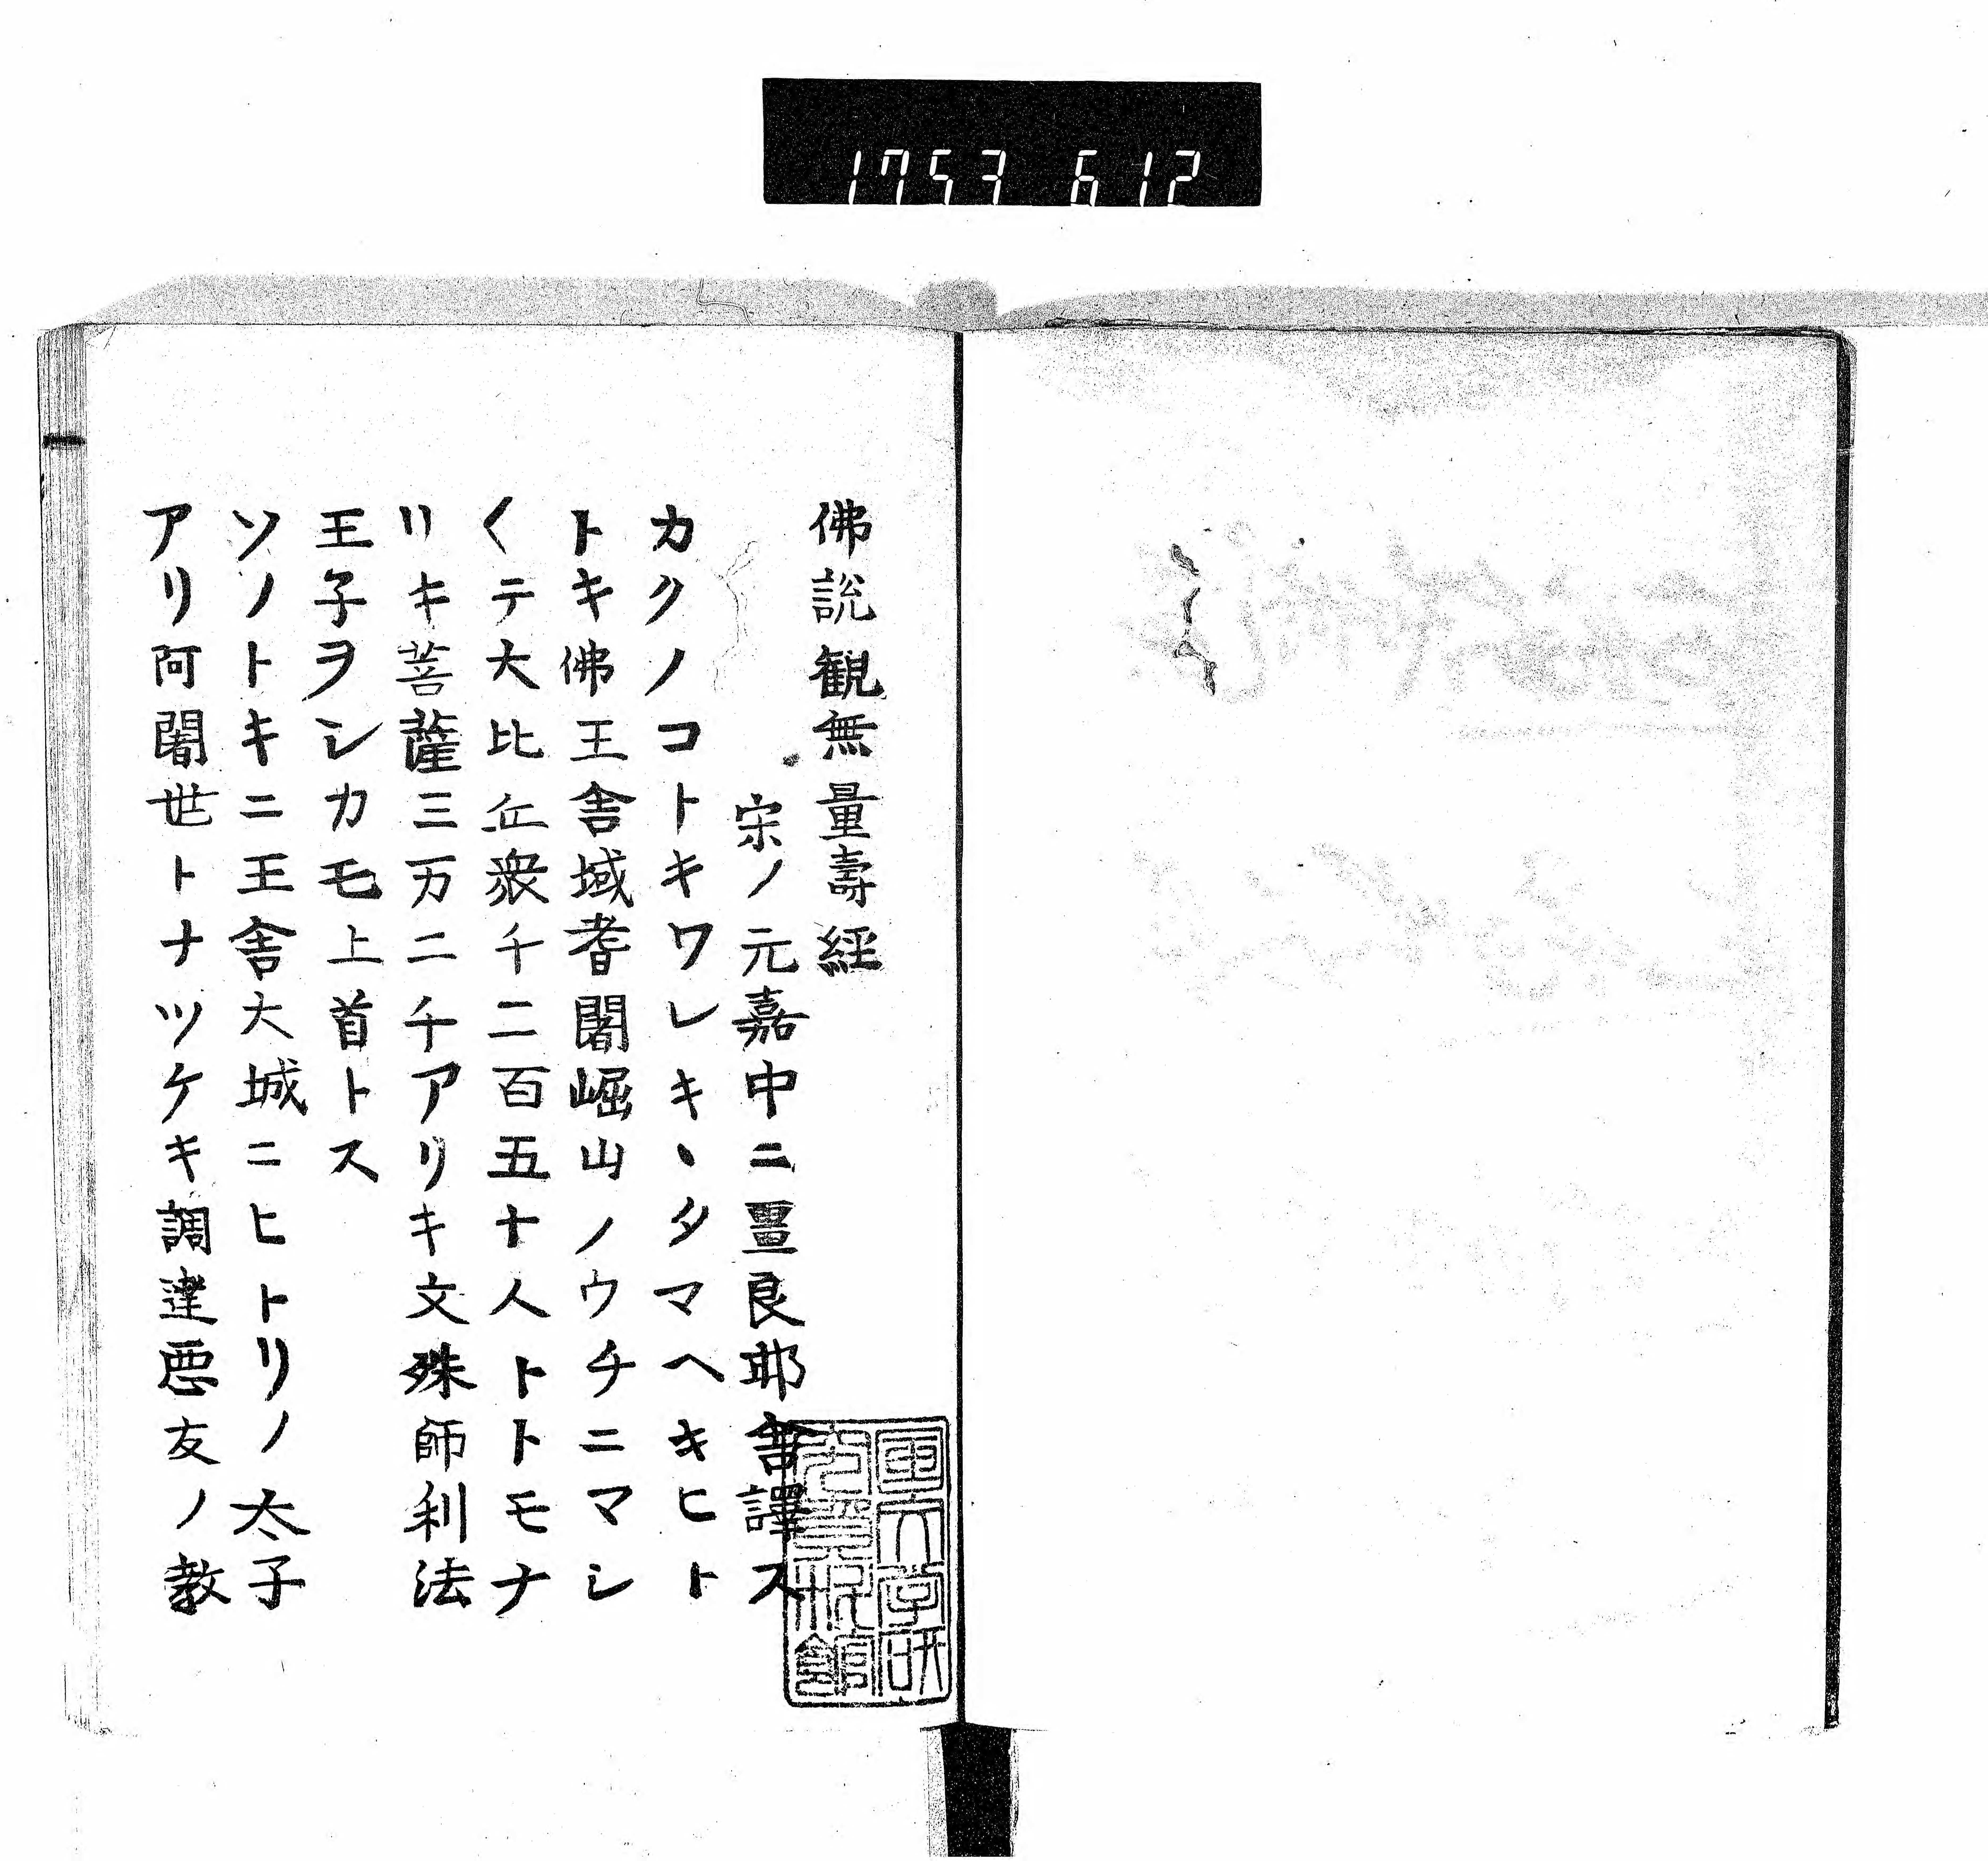 1753 612
佛説観無量壽經
宋ノ元嘉中ニ畺良耶舎譯ス
カクノコトキワレキヽタマヘキヒト
トキ佛王舎域耆闍崛山ノウチニマシ
〱テ大比丘衆千二百五十人トトモナ
リキ菩薩三万二千アリキ文殊師利法
王子ヲシカモ上首トス
ソノトキニ王舎大城ニヒトリノ太子
アリ阿闍世トナツケキ調達悪友ノ教